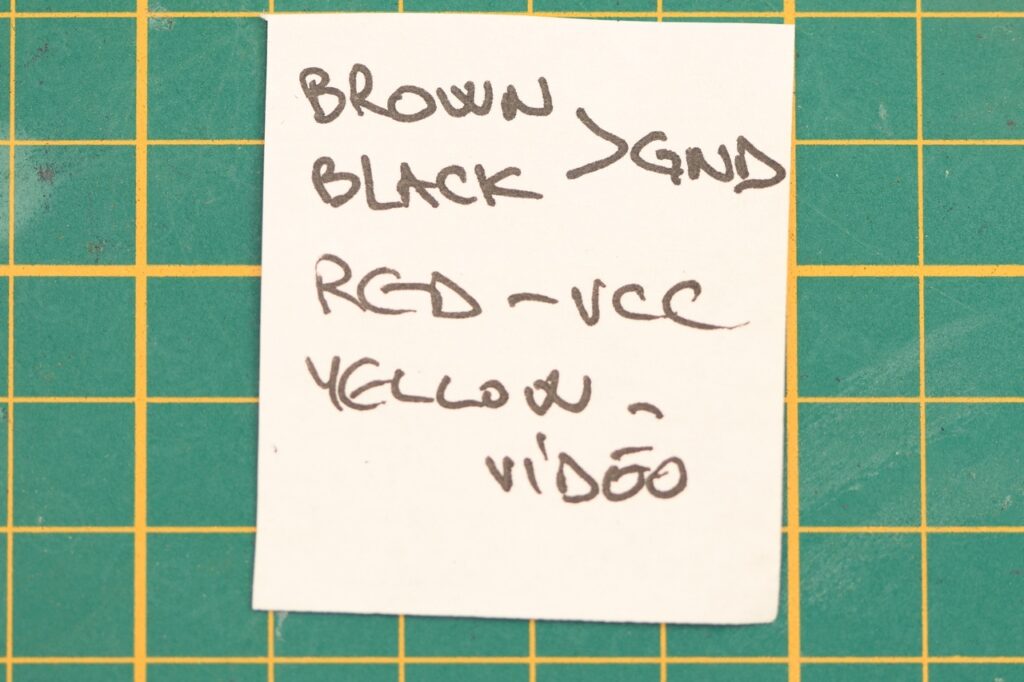 BROWN
BLACK > GND
RED - VCC
YELLOW -
VIDEO